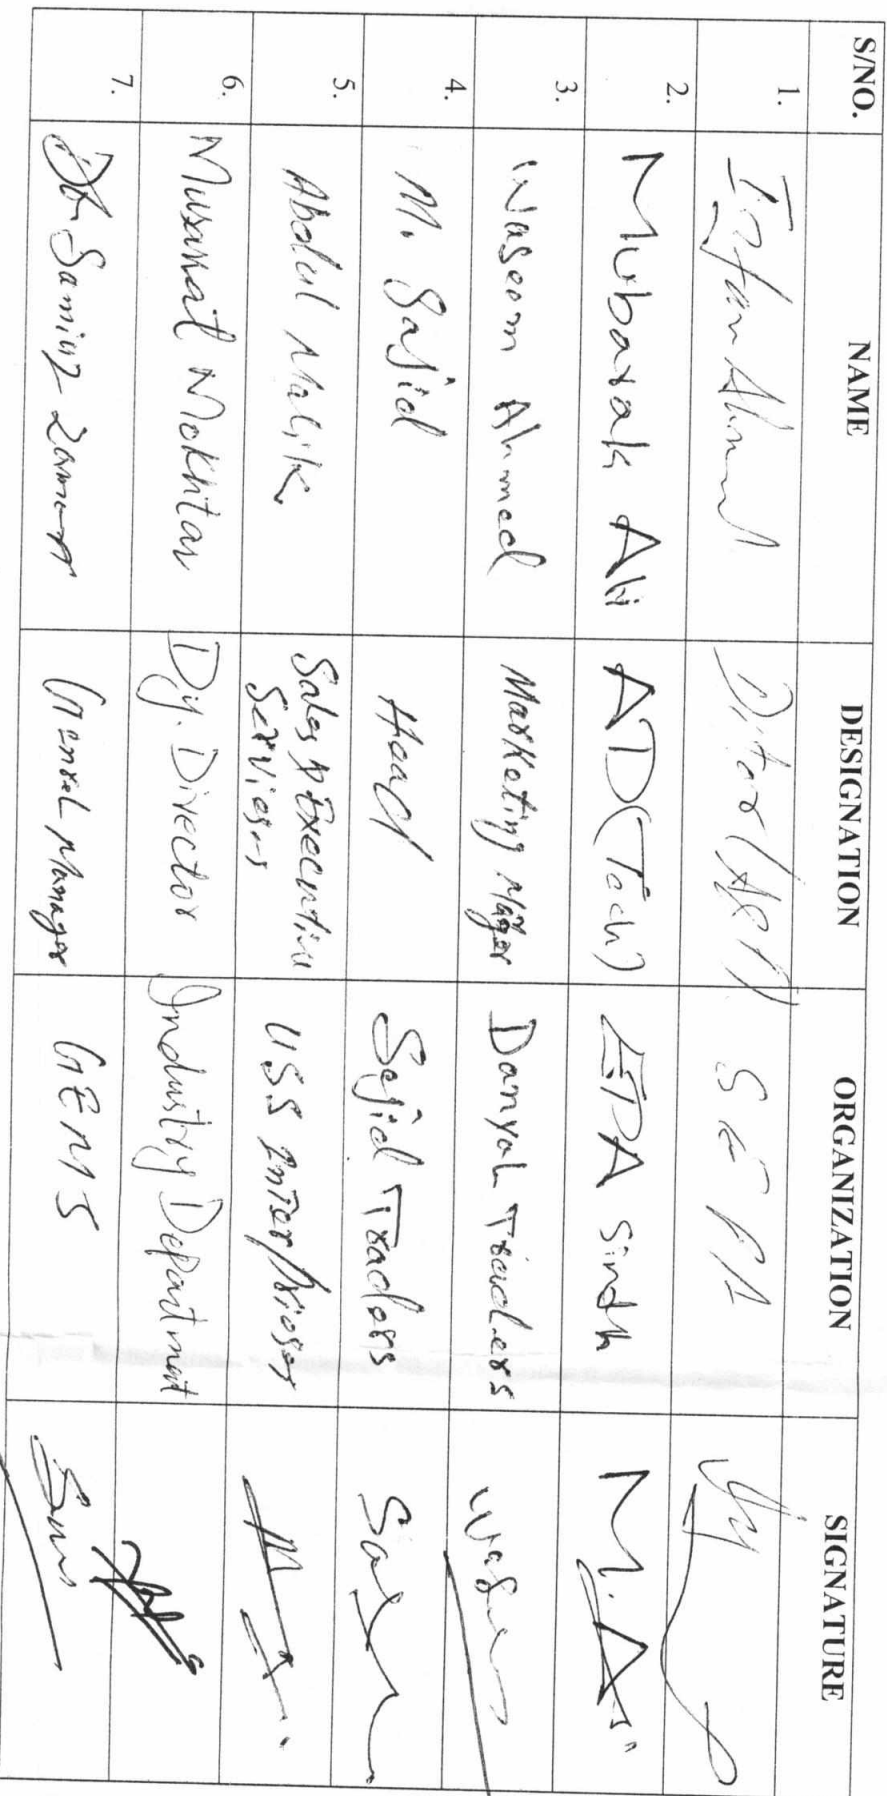 S/NO. NAME DESIGNATION ORGANIZATION SIGNATURE
1. Irfan Ahmed SEPA
2. Mubarak Ali AD(Tech) EPA Sindh M.A
3. Waseem Ahmed Marketing Manger Danyal Traders
4. M. Sajid Head Sajid Traders
5. Abdul Malik Sales & Executive
Services USS Interprises
6. Musarrat Mokhtar Dy. Director Industry Department
7. Dr Samiuz Zaman General Manager GEMS